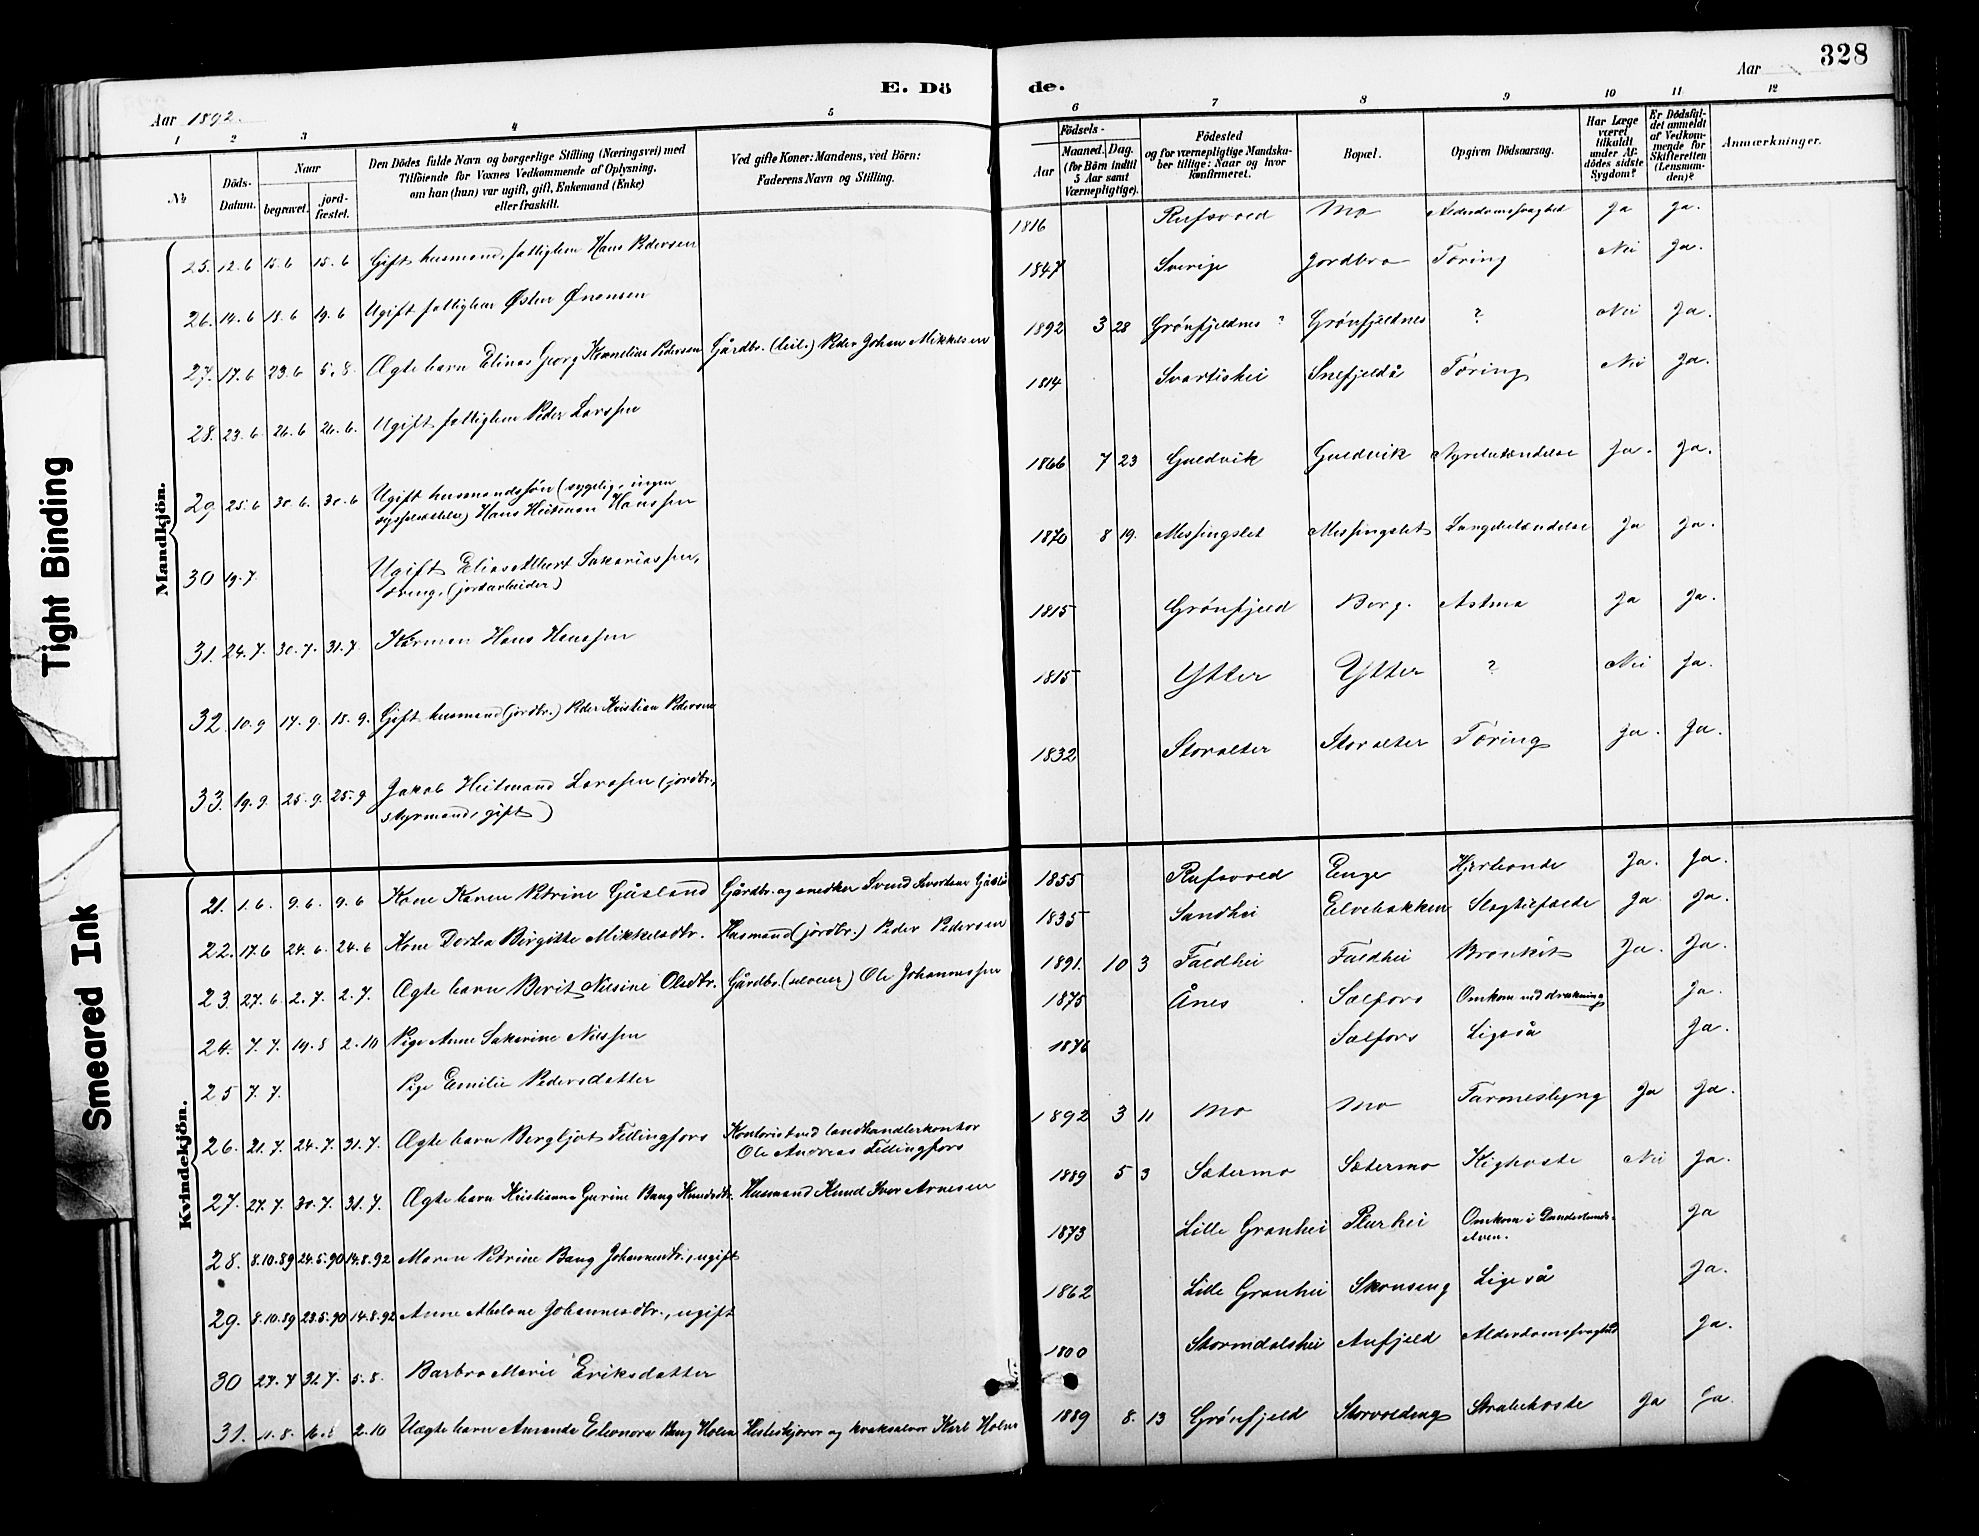 328
E. Dö de.
Aar 1892.
Aar
1 2 3 4 5 6 7 8 9 10 11 12
No
Döds-Datum.
Naar
begravet.
jord-fæstet.
Den Dödes fulde Navn og borgerlige Stilling (Næringsvei) med
Tilföiende for Voxnes Vedkommende af Oplysning,
om han (hun) var ugift, gift, Enkemand (Enke)
eller fraskilt.
Ved gifte Koner: Mandens, ved Börn:
Faderens Navn og Stilling.
Födsels-
Aar
Maaned. Dag.
(for Börn indtil
5 Aar samt
Værnepligtige).
Födested
og for værnepligtige Mandska-
ber tillige: Naar og hvor
konfirmeret.
Bopæl.
Opgiven Dödsaarsag.
Har Læge
været
tilkaldt
under Af-
dödes sidste
Sygdom?
Er Dödsfal-
det anmeldt
af Vedkom-
mende for
Skifteretten
(Lensman-
den)?
Anmærkninger.
Tight Binding
Smeared Ink
Mandkjön.
25. 12.6 15.6 15.6 Gift husmand, fattiglem Hans Pedersen 1816 Rufsvold Mo Alderdomssvaghed Ja Ja.
26. 14.6 18.6 19.6 Ugift fattiglem Østen Ønensen 1847 Sverige Jordbro Tæring Nei Ja.
27. 17.6 23.6 5.8. Ægte barn Elinas Georg Kornelius Pedersen Gårdbr. (leil.) Peder Johan Mikkelsen 1892 3 28 Grønfjeldnes ? Grønfjeldnes ? Nei Ja.
28. 23.6. 26.6 26.6. Ugift fattiglem Peder Larssen 1814 Svartishei Snefjeldå Tæring Nei Ja.
29. 25.6 30.6 30.6 Ugift husmandssøn (sygelig, ingen
sysselsættelse) Hans Heitman Hanssen 1866 7 23 Guldvik Guldvik Nyrebetændelse Ja. Ja.
30 19.7. Ugift Elias Albert Sakariassen,
dreng. (jordarbeider) 1870 8 19. Messingslet Messingslet Lungebetændelse Ja Ja.
31. 24.7. 30.7. 31.7. Kårman Hans Hanssen 1815 Grønfjeld Borg. Astma Ja Ja.
32. 10.9 17.9. 18.9. Gift husmand (jordbr.) Peder Kristian Pedersen 1815 Ytter Ytter ? Nei Ja.
33. 19.9. 25.9. 25.9 Jakob Heitmand Larssen (jordbr.,
styrmand, gift) 1832 Storalter Storalter Tæring Ja. Ja.
Kvindekjön.
21. 1.6. 9.6. 9.6 Kone Karen Petrine Gåsland Gårdbr. og snedker Svend Svendsen 1855 Rufsvold Enge Hjerteonde Ja. Ja.
22. 17.6 24.6. 24.6 Kone Dortea Birgitte Mikkelsdtr. Husmand (jordbr.) Peder Pedersen 1835 Sandhei Elvebakken Slagtilfælde Ja Ja.
23. 27.6. 2.7. 2.7. Ægte barn Berit Nilsine Olsdtr. Gårdbr. (selveier) Ole Johannessen 1891. 10 3 Faldhei Faldhei Bronkit Ja. Ja.
24. 7.7. 19.8 2.10 Pige Anne Sakarine Nilssen 1875 Ånes Sælfors Omkom ved drukning Ja.
25 7.7. Pige Emilie Pedersdatter 1876 Sælfors Ligeså Ja.
26. 21.7. 24.7. 31.7. Ægte barn Bergljot Fellingfors Kontorist ved landhandlerkontor
Ole Andreas Fellingfors 1892 3 11 Mo Mo Tarmeslyng Ja Ja.
27. 27.7. 30.7. 31.7. Ægte barn Kristianna Gurine Bang Knudsdtr. Husmand Knud Iver Arnesen 1889 5 3 Sætermo Sætermo Kighoste Nei Ja.
28. 8.10.89 24.5.90 14.8.92 Maren Petrine Bang Johannesdtr., ugift 1873 Lille Granhei Plurhei Omkom i Dunderlands-
elven. Ja
29. 8.10.89 23.5.90 14.8.92 Anne Abelone Johannesdtr., ugift 1862 Lille Granhei Skonseng Ligeså Ja.
30 27.7 31.7. 5.8. Barbro Marie Eriksdatter 1800 Stormdalshei Aufjeld Alderdomssvaghed Ja.
31. 11.8. 16.8 2.10 Uægte barn Amanda Eleonora Bang Holm Hesteskjærer og kvaksalver Karl Holm 1889 8. 13 Grønfjeld Storvolding Strubehoste Ja Ja.